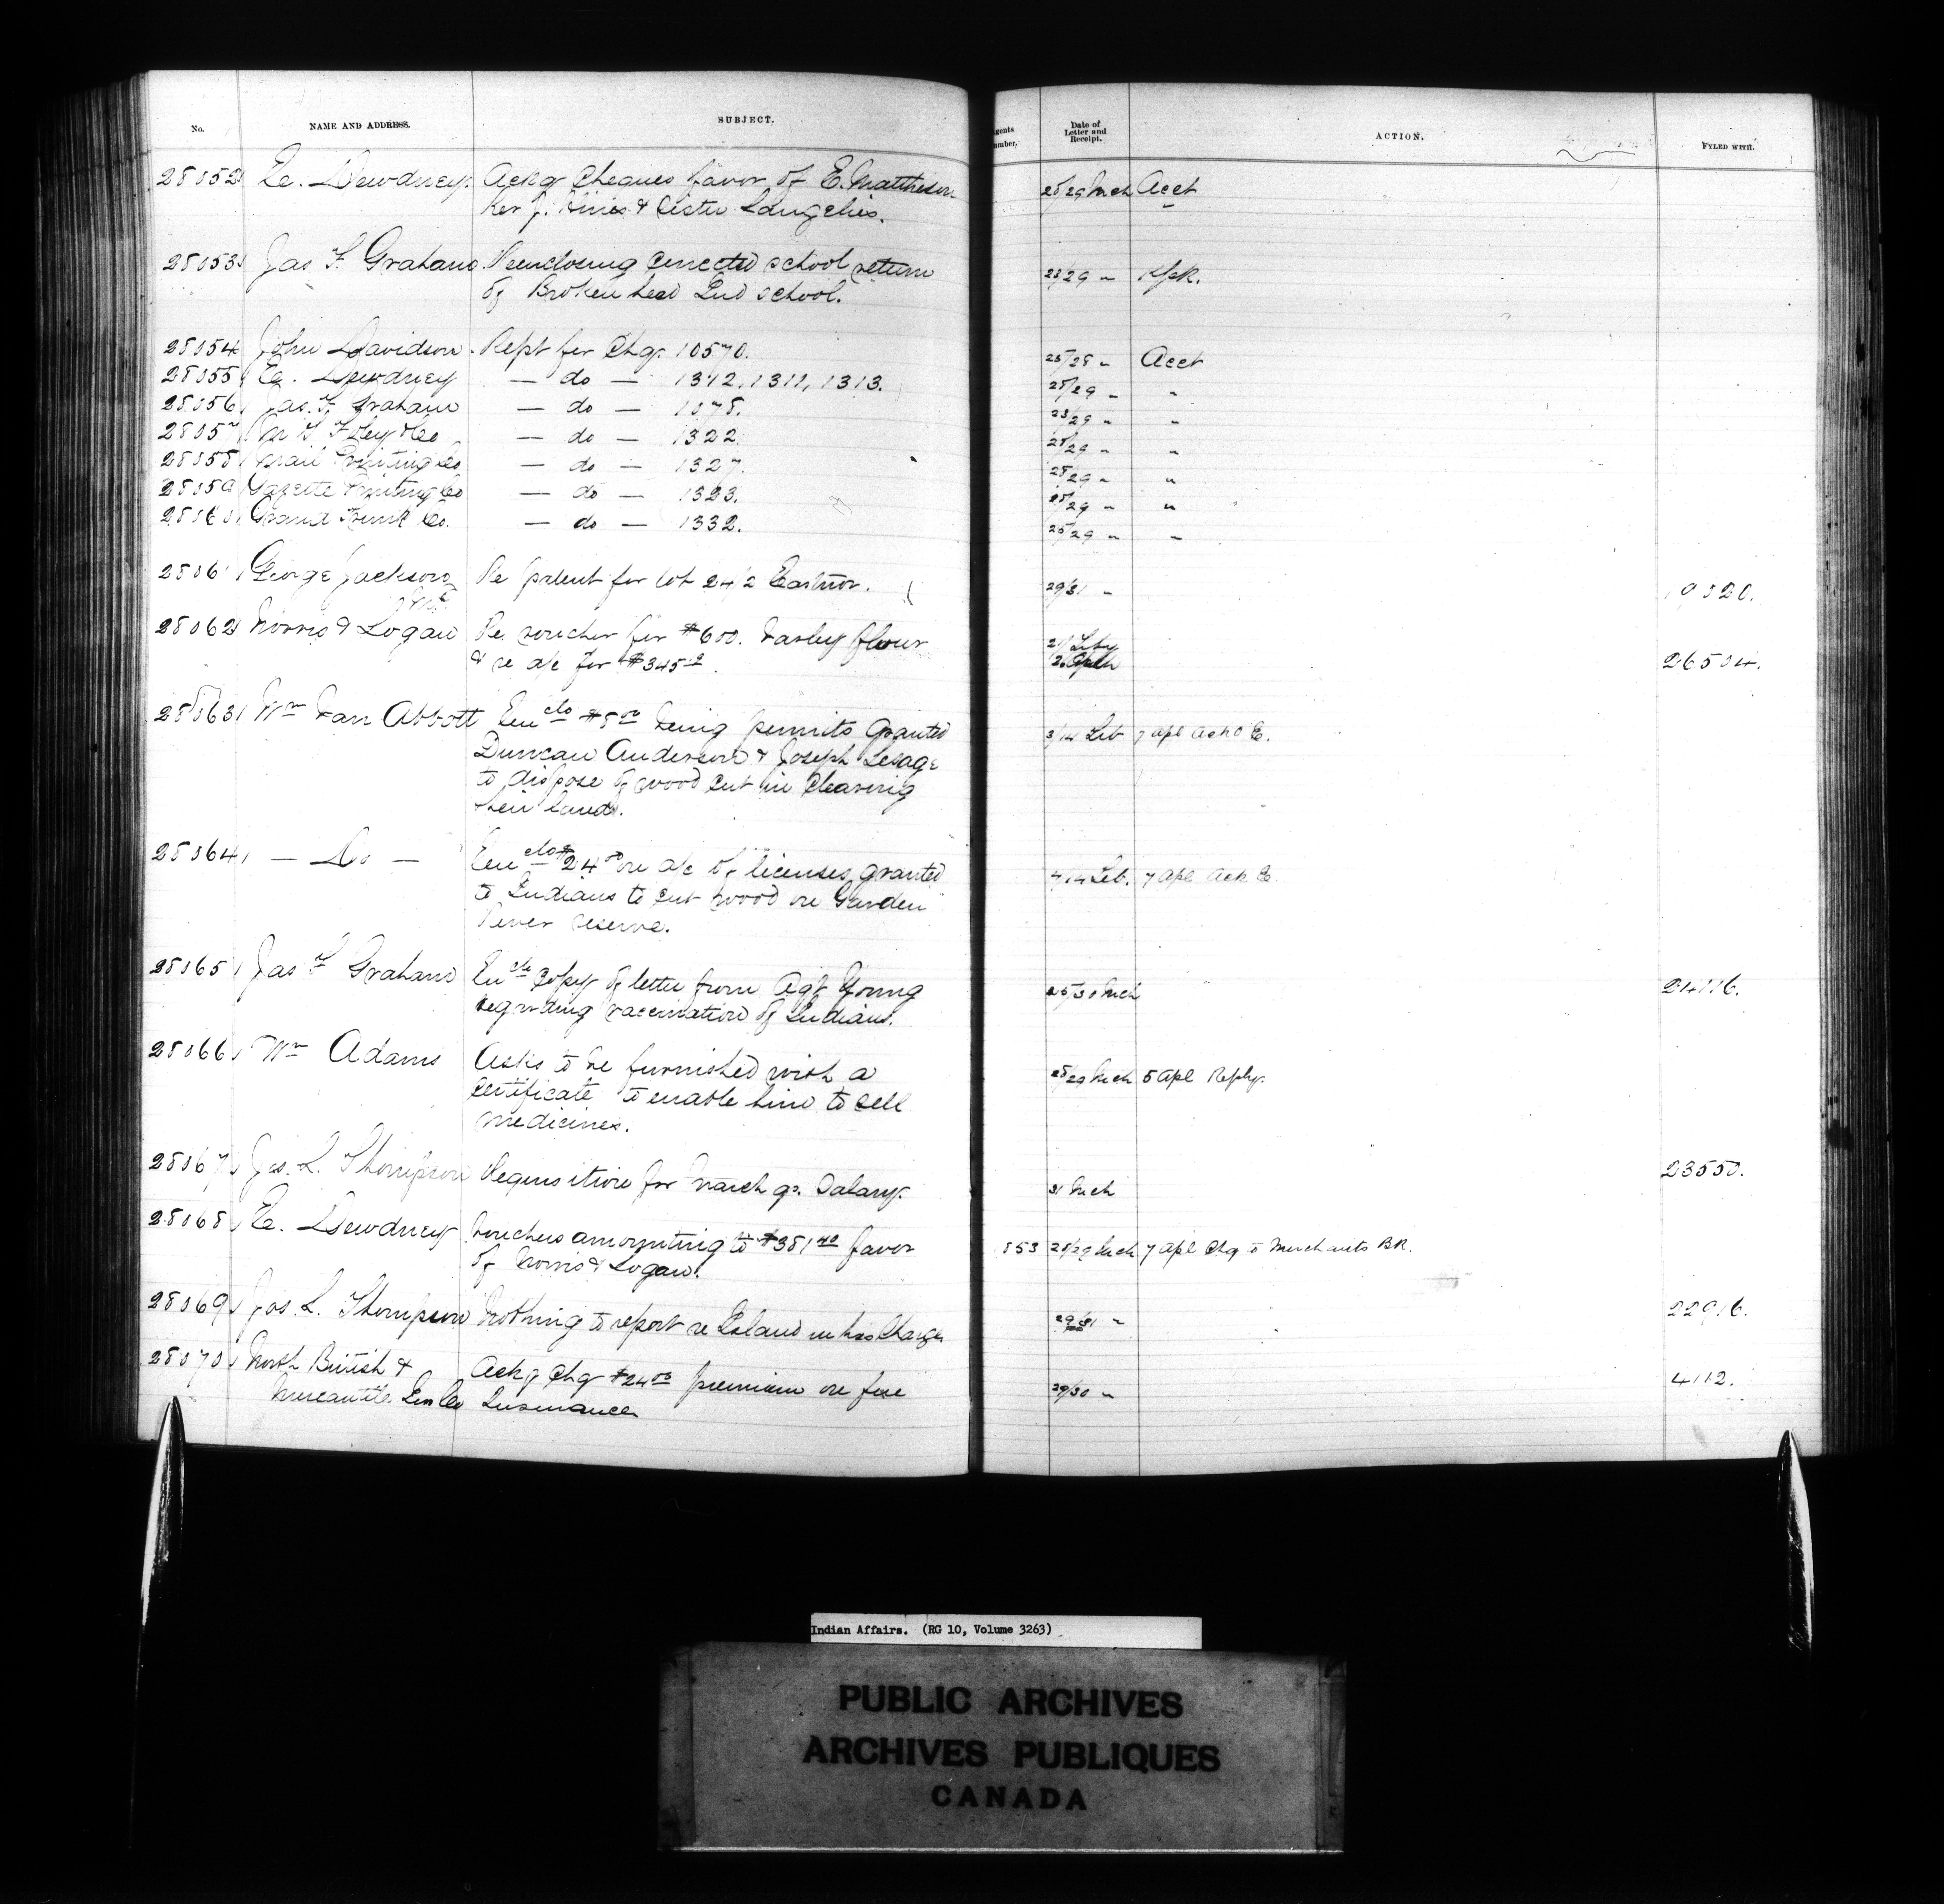 No. NAME AND ADDRESS. SUBJECT. Agents Number. Date of Letter and Receipt. ACTION. FYLED WITH.
28052 E. Dewdney. Ackg Cheques favor of E. Matheson 28/29 Mch Acct
Rev J. Hines & Sister Langelies.
28053 Jas F. Graham Reenclosing corrected school return 28/29 "
of Broken head Ind school.
28054 John Davidson Rept for Chq. 10570. 28/28 " Acct
28055 E. Dewdney — do — 1312, 1311, 1313. 28/29 " "
28056 Jas. F. Graham — do — 1078. 28/29 " "
28057 — do — 1322. 28/29 " "
28058 Mail Printing Co — do — 1327. 28/29 " "
28059 Gazette Printing Co — do — 1323. 28/29 " "
28060 Grand Trunk Co. — do — 1332. 28/29 " "
28061 George Jackson Re patent for lot 24/2 Eastnor. 29/31 " 19320.
28062 Norris & Logan Re voucher for #600. barley flour
& re a/c for $345 26504.
28063 Wm Van Abbott Enclo $8.00 being permits granted 3/14 Feb 7 Apl Ack E.
Duncan Anderson & Joseph Lesage
to dispose of wood cut in clearing
their land.
28064 — Do — Enclo $24.00 on a/c of licenses granted 7/14 Feb. 7 Apl Ack E.
to Indians to cut wood on Garden
River reserve.
28065 Jas F Graham Enclo copy of letter from Agt Young 25/30 Mch
regarding vaccination of Indians.
28066 Wm Adams Asks to be furnished with a 28/29 Mch 5 Apl Reply.
certificate to enable him to sell
medicines.
28067 Jas. L. Thompson Requisition for March qr. Salary. 31 Mch 23550.
28068 E. Dewdney Vouchers amounting to $381.40 favor 853 28/29 Mch 7 Apl Chq to Merchants BK.
of Norris & Logan.
28069 Jas. L. Thompson Nothing to report re Island in his Charge 29/31 " 22916.
28070 North British & Ackg Chq $24.00 premium on fire 29/30 " 4112.
Mercantile Ins Co Insurance
Indian Affairs. (RG 10, Volume 3263)
PUBLIC ARCHIVES
ARCHIVES PUBLIQUES
CANADA